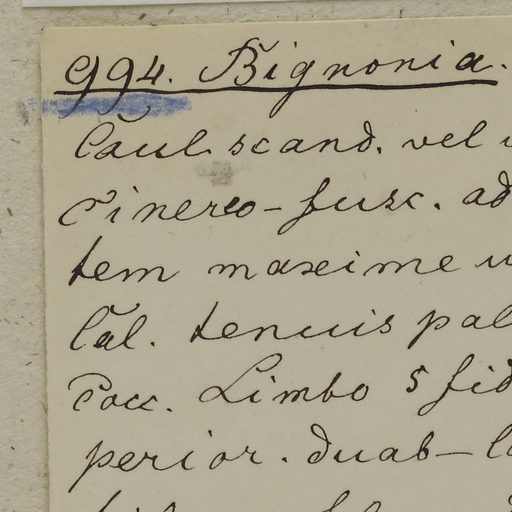 994. Bignonia.
Caul. scand. vel
Cinereo-fusc. ad
tem maxime
Cal. tenuis pal
Cocc. Limbo 5 fid
perior. duab-